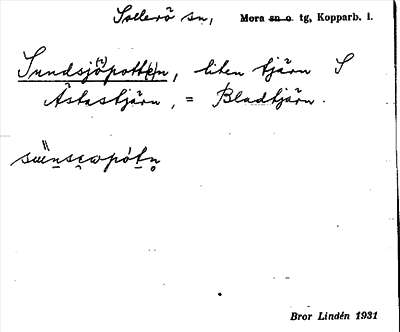 Sollerö sn, Mora sn o. tg, Kopparb. l.
Sundsjö(?)pott(e)n, liten tjärn S
Åstastjärn, = Bladtjärn.
Bror Lindén 1931